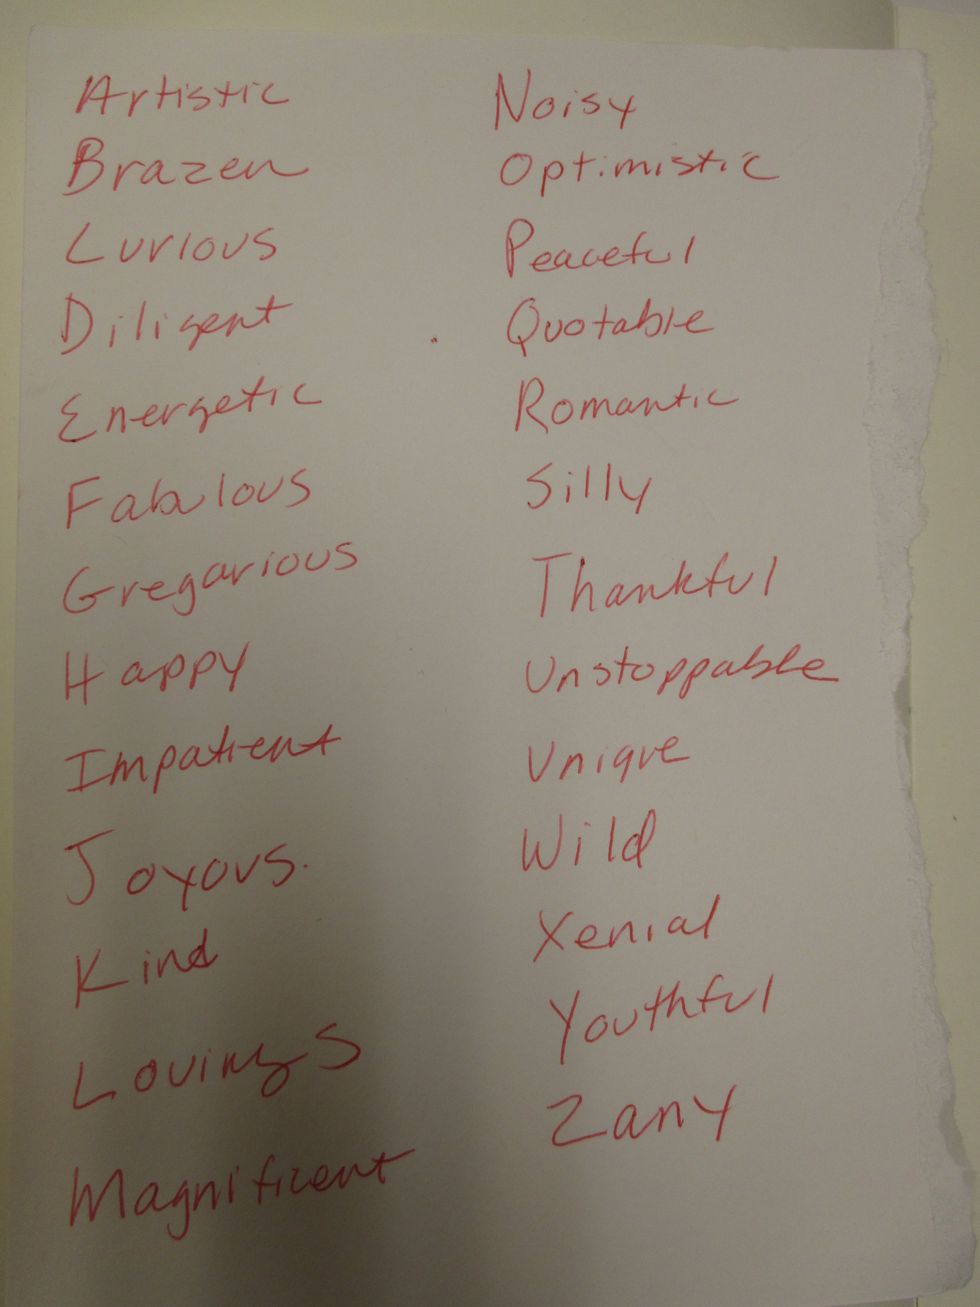 Artistic
Brazen
Curious
Diligent
Energetic
Fabulous
Gregarious
Happy
Impatient
Joyous.
Kind
Lovings
Magnificent
Noisy
Optimistic
Peaceful
Quotable
Romantic
Silly
Thankful
Unstoppable
Unique
Wild
Xenial
Youthful
Zany